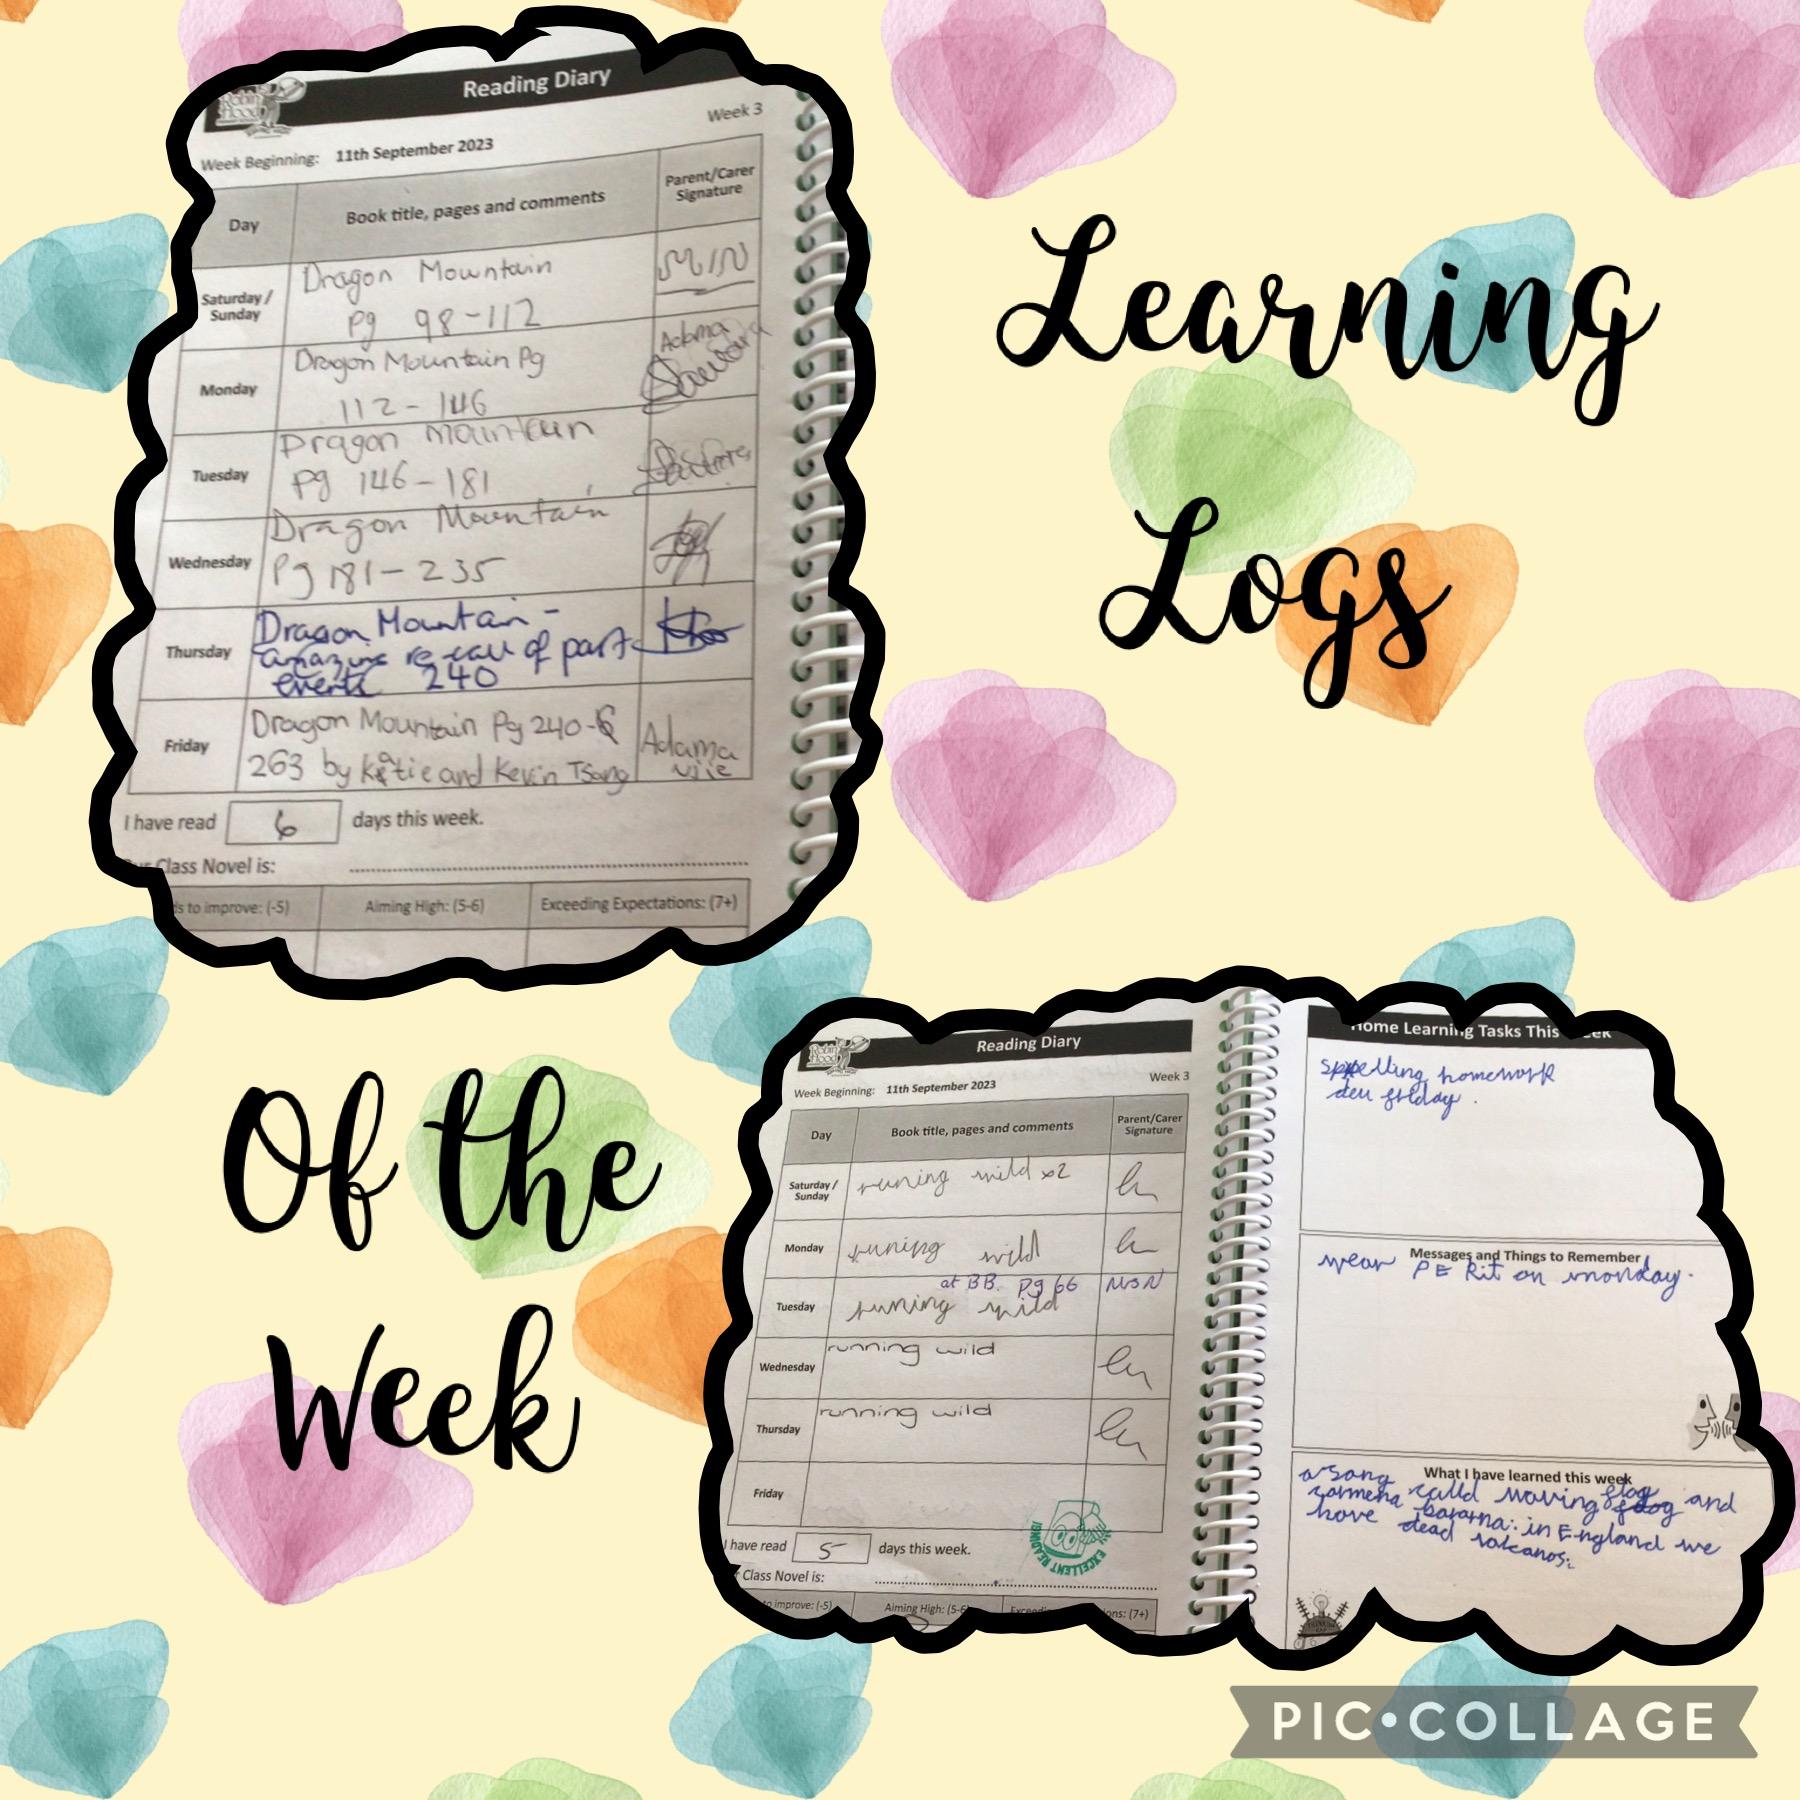 Reading Diary
Robin Hood
Week 3
Week Beginning: 11th September 2023
Day
Book title, pages and comments
Parent/Carer
Signature
Saturday /
Sunday
Dragon Mountain
pg 98-112
Monday
Dragon Mountain Pg
112-146
Adama
Tuesday
Dragon Mountain
pg 146-181
Wednesday
Dragon Mountain
Pg 181-235
Thursday
Dragon Mountain -
amazing recall of past
events 240
Friday
Dragon Mountain Pg 240-
263 by Katie and Kevin Tsang
Adama
I have read 6 days this week.
Class Novel is:
to improve: (-5)
Aiming High: (5-6)
Exceeding Expectations: (7+)
Learning
Logs
Of the
Week
Reading Diary
Robin Hood
Week 3
Week Beginning: 11th September 2023
Day
Book title, pages and comments
Parent/Carer
Signature
Saturday /
Sunday
runing wild x2
Monday
runing wild
at BB. pg 66
Tuesday
runing wild
Wednesday
running wild
Thursday
running wild
Friday
EXCELLENT READING!
I have read 5 days this week.
Class Novel is:
to improve: (-5)
Aiming High: (5-6)
(7+)
Home Learning Tasks This Week
spelling homework
Messages and Things to Remember
wear PE kit on monday.
What I have learned this week
a song
calld moving
and
in England we
have dead
PIC•COLLAGE